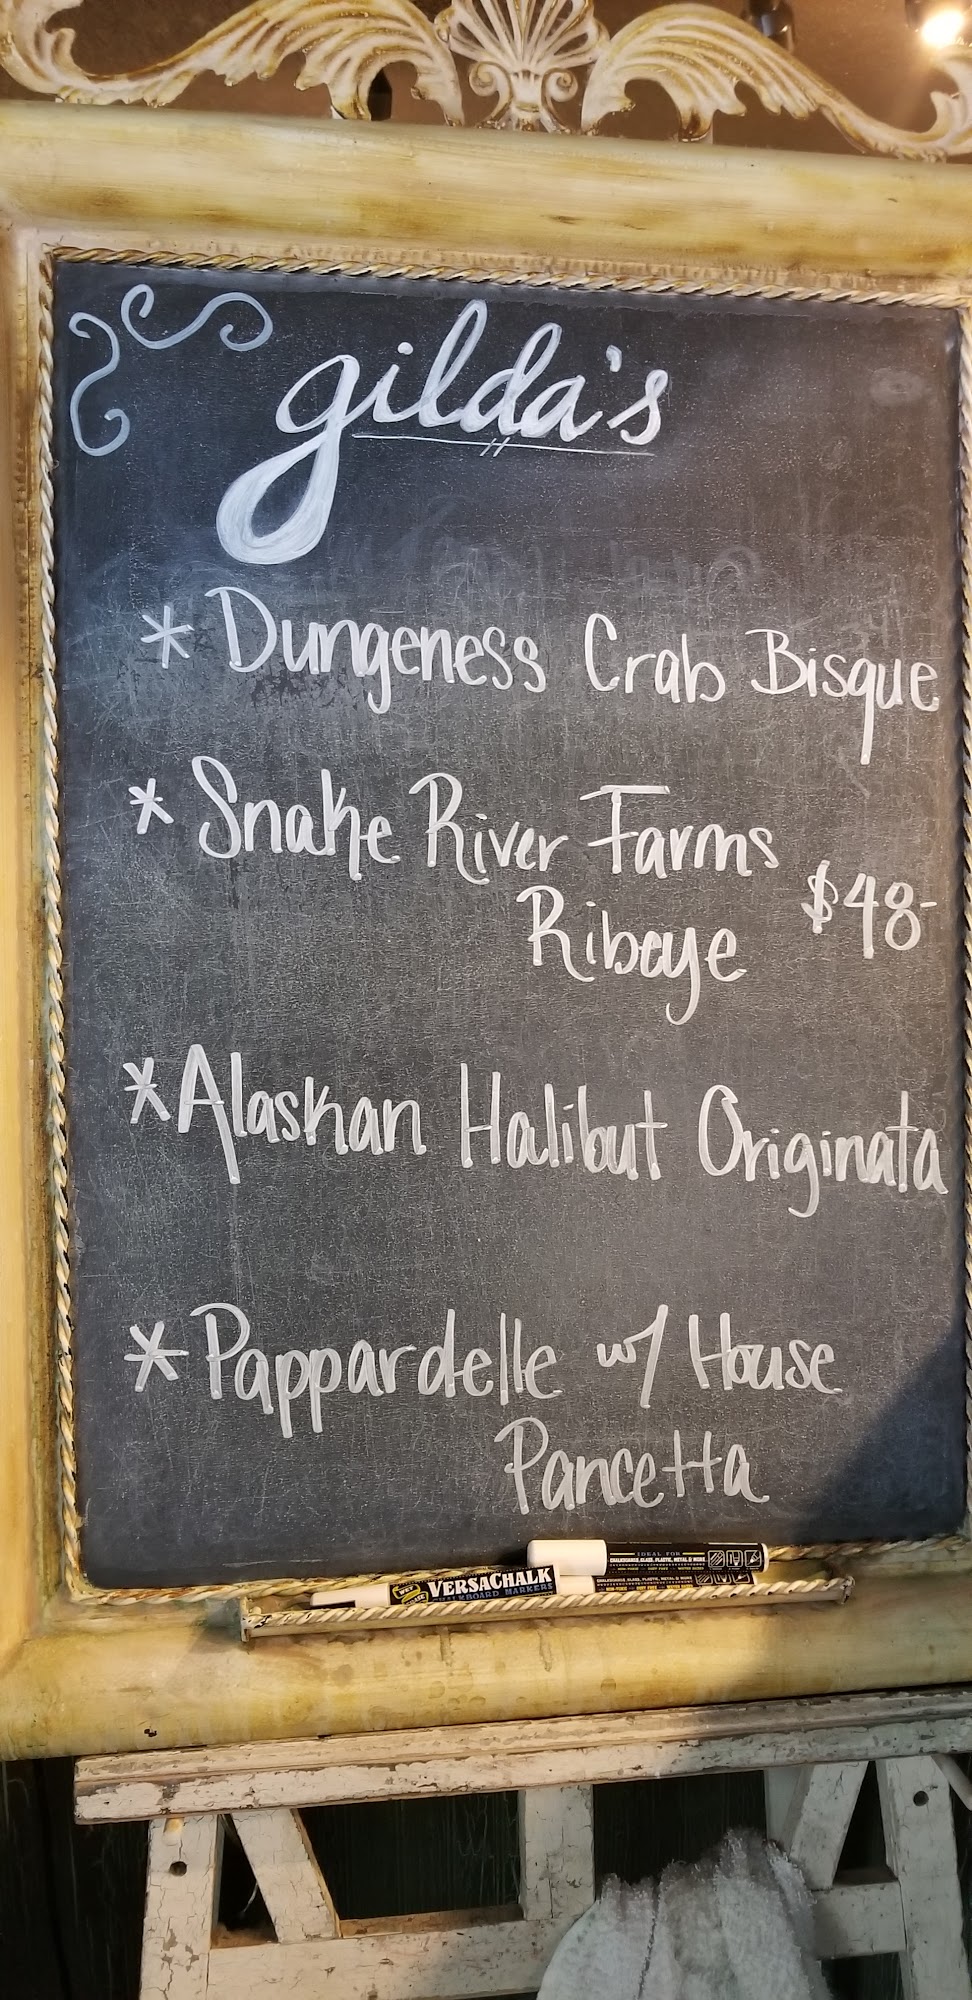 gilda's
* Dungeness Crab Bisque
* Snake River Farms
Ribeye $48-
* Alaskan Halibut Originata
* Pappardelle w/ House
Pancetta
IDEAL FOR
CHALKBOARDS, GLASS, PLASTIC, METAL & MORE
VERSACHALK
CHALKBOARD MARKERS